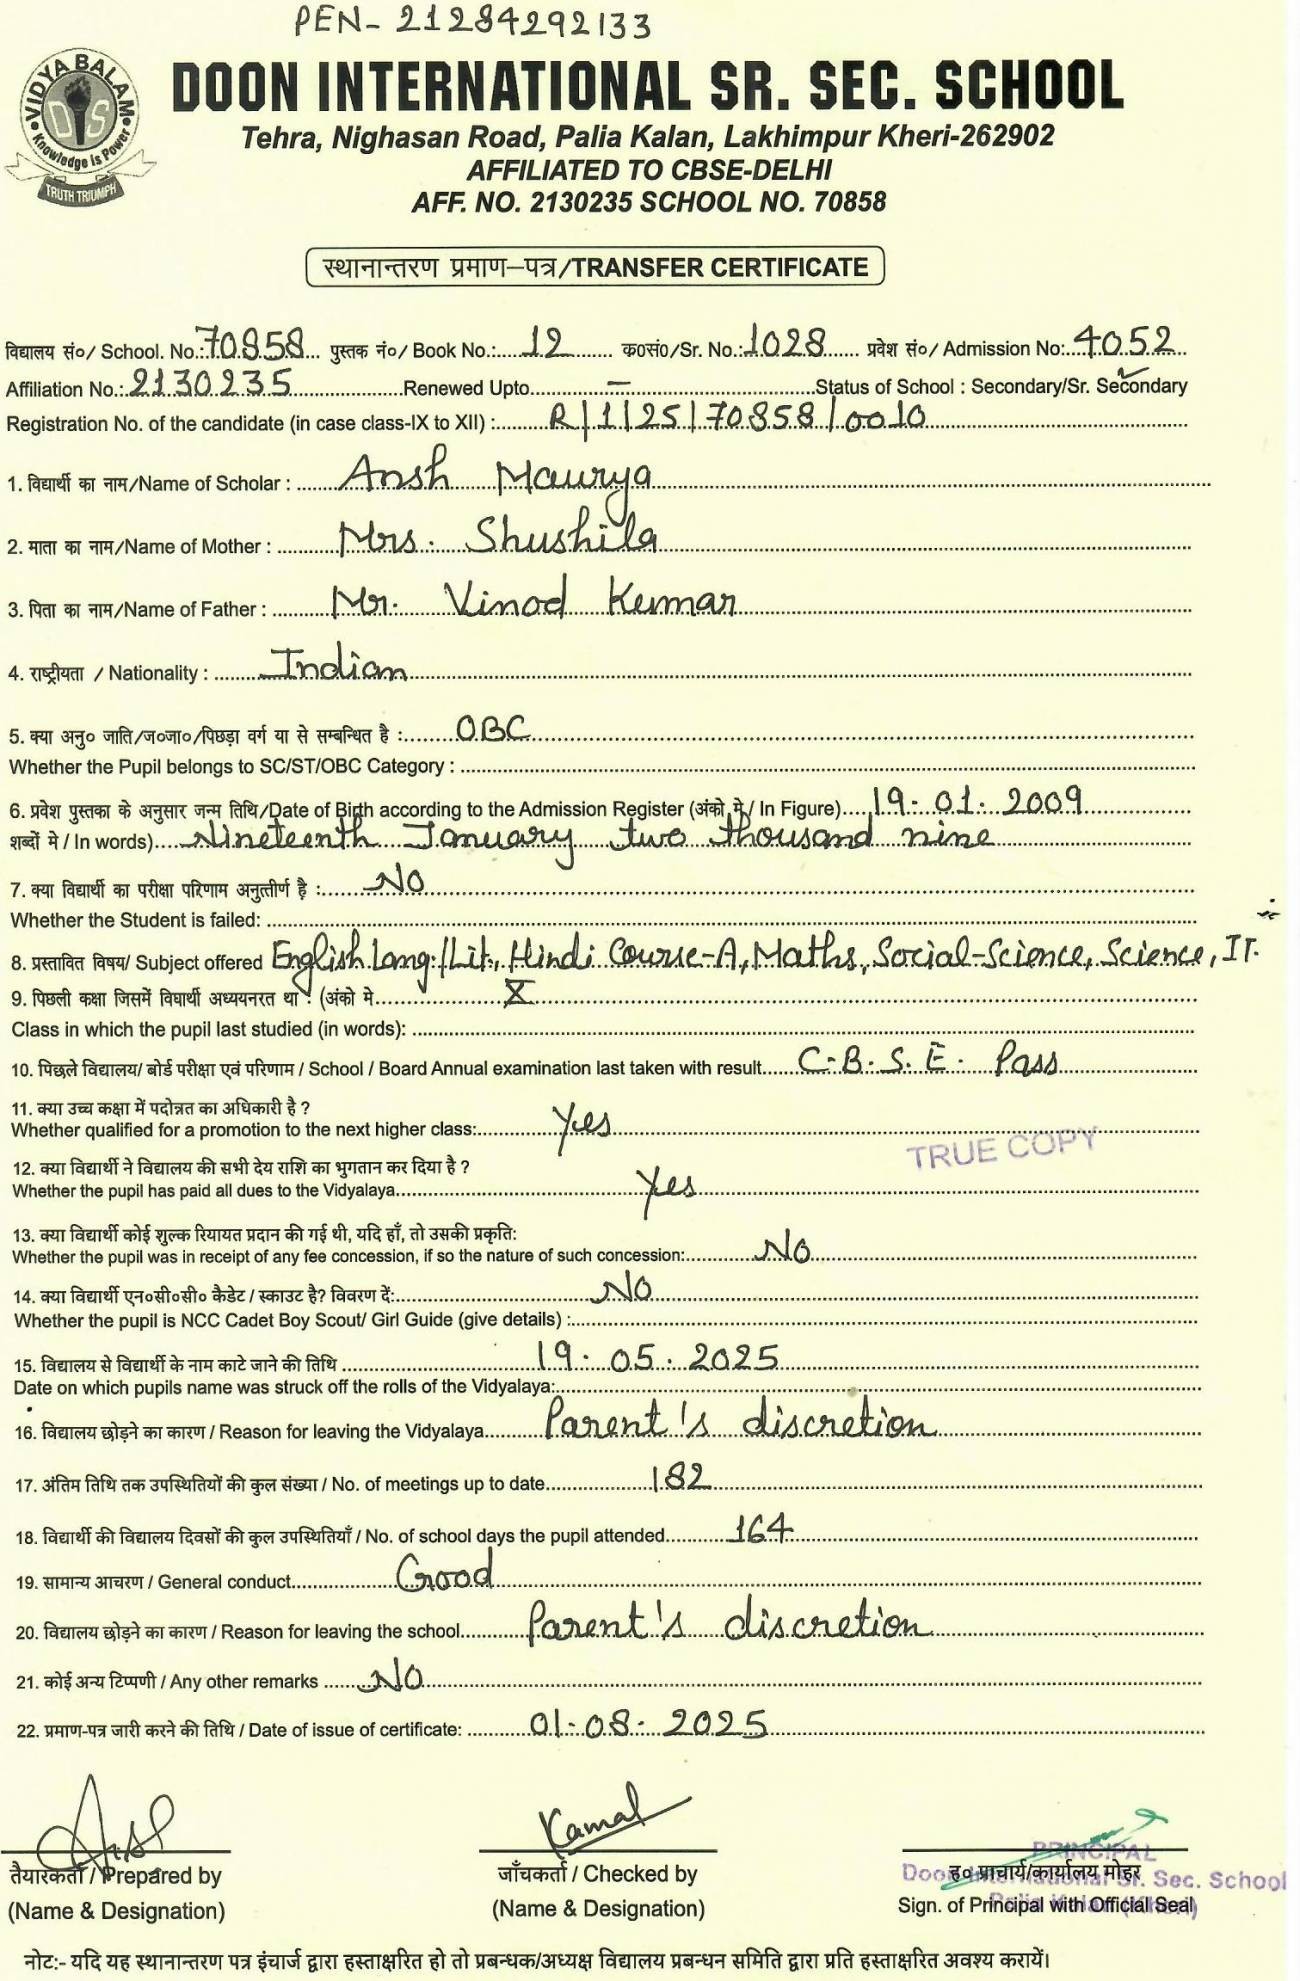 PEN- 21284292133
VIDYA BALAM
DIS
Knowledge is Power
TRUTH TRIUMPH
DOON INTERNATIONAL SR. SEC. SCHOOL
Tehra, Nighasan Road, Palia Kalan, Lakhimpur Kheri-262902
AFFILIATED TO CBSE-DELHI
AFF. NO. 2130235 SCHOOL NO. 70858
स्थानान्तरण प्रमाण–पत्र/TRANSFER CERTIFICATE
विद्यालय सं०/ School. No.: 70858 पुस्तक नं०/ Book No.: 12 क०सं०/Sr. No.: 1028 प्रवेश सं०/ Admission No: 4052
Affiliation No.: 2130235 Renewed Upto – Status of School : Secondary/Sr. Secondary
Registration No. of the candidate (in case class-IX to XII) : R|1|25|70858|0010
1. विद्यार्थी का नाम/Name of Scholar : Ansh Maurya
2. माता का नाम/Name of Mother : Mrs. Shushila
3. पिता का नाम/Name of Father : Mr. Vinod Kumar
4. राष्ट्रीयता / Nationality : Indian
5. क्या अनु० जाति/ज०जा०/पिछड़ा वर्ग या से सम्बन्धित है : OBC
Whether the Pupil belongs to SC/ST/OBC Category :
6. प्रवेश पुस्तका के अनुसार जन्म तिथि/Date of Birth according to the Admission Register (अंको मे/ In Figure) 19-01-2009
शब्दों मे / In words) Nineteenth January two thousand nine
7. क्या विद्यार्थी का परीक्षा परिणाम अनुत्तीर्ण है : No
Whether the Student is failed:
8. प्रस्तावित विषय/ Subject offered English Lang./Lit., Hindi Course-A, Maths, Social-Science, Science, IT.
9. पिछली कक्षा जिसमें विघार्थी अध्ययनरत था : (अंको मे X
Class in which the pupil last studied (in words):
10. पिछले विद्यालय/ बोर्ड परीक्षा एवं परिणाम / School / Board Annual examination last taken with result C.B.S.E. Pass
11. क्या उच्च कक्षा में पदोन्नत का अधिकारी है ?
Whether qualified for a promotion to the next higher class: Yes
TRUE COPY
12. क्या विद्यार्थी ने विद्यालय की सभी देय राशि का भुगतान कर दिया है ?
Whether the pupil has paid all dues to the Vidyalaya Yes
13. क्या विद्यार्थी कोई शुल्क रियायत प्रदान की गई थी, यदि हाँ, तो उसकी प्रकृति:
Whether the pupil was in receipt of any fee concession, if so the nature of such concession: No
14. क्या विद्यार्थी एन०सी०सी० कैडेट / स्काउट है? विवरण दें: No
Whether the pupil is NCC Cadet Boy Scout/ Girl Guide (give details) :
15. विद्यालय से विद्यार्थी के नाम काटे जाने की तिथि 19.05.2025
Date on which pupils name was struck off the rolls of the Vidyalaya:
16. विद्यालय छोड़ने का कारण / Reason for leaving the Vidyalaya Parent's discretion
17. अंतिम तिथि तक उपस्थितियों की कुल संख्या / No. of meetings up to date 182
18. विद्यार्थी की विद्यालय दिवसों की कुल उपस्थितियाँ / No. of school days the pupil attended 164
19. सामान्य आचरण / General conduct Good
20. विद्यालय छोड़ने का कारण / Reason for leaving the school Parent's discretion
21. कोई अन्य टिप्पणी / Any other remarks No
22. प्रमाण-पत्र जारी करने की तिथि / Date of issue of certificate: 01-08-2025
Kamal
PRINCIPAL
तैयारकर्ता / Prepared by जाँचकर्ता / Checked by ह० प्राचार्य/कार्यालय मोहर
Doon International Sr. Sec. School
(Name & Designation) (Name & Designation) Sign. of Principal with Official Seal
Palia Kalan (Kheri)
नोट:- यदि यह स्थानान्तरण पत्र इंचार्ज द्वारा हस्ताक्षरित हो तो प्रबन्धक/अध्यक्ष विद्यालय प्रबन्धन समिति द्वारा प्रति हस्ताक्षरित अवश्य करायें।